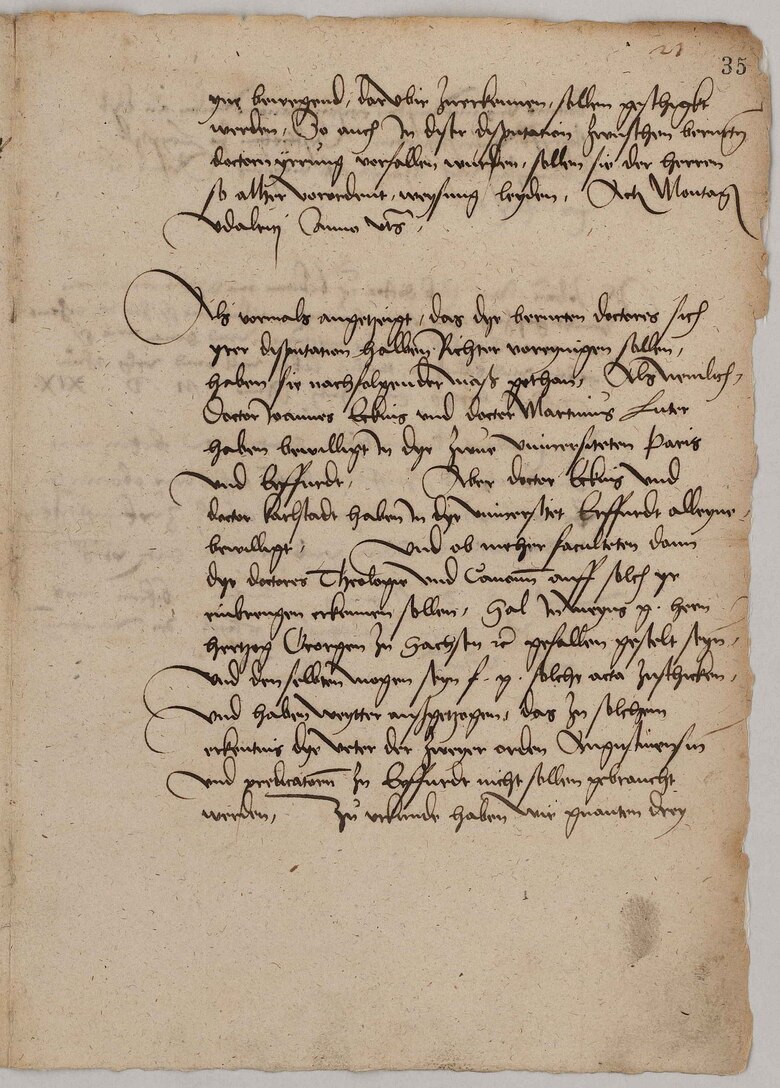 21
35
yne bewegend, dar Vbir Zuerkennen, sollen geschigkt
werden, So auch In diser disputation Zwuschen berurten
doctorn yrrung vorfallen wurden, sollen sie der herren
so alher Vorordent, weysung leyden, Act Montag
Vdalrici Anno vts
Als vormals angetzeigt, das dye berurten doctores sich
yrer disputation halben Richter voreynigen sollen,
haben sie nachfolgender mass gethan, Als nemlich,
Doctor Joannes Eckius vnd doctor Martinus Luter
haben bewilligt In dye Zwue vniuersiteten Paris
Vnd Erffurdt, Aber doctor Eckius Vnd
doctor Karlstadt haben In dye vniuersitet Erffurdt alleyne,
bewilligt, Vnd ob mehr faculteten dann
dye doctores Theologie Vnd Canonum auff solch yr
einbrengen erkennen sollen, Sal In meyns g. hern
hertzog Georgen Zu Sachsen etc gefallen gestelt seyn,
Vnd den selben mogen seyn f. g. solche acta Zuschicken,
Vnd haben weytter aussgetzogen, das In solchem
erkentnis dye Veter der Zweyer orden Augustinensium
Vnd predicatorum Zu Erffurdt nicht sollen gebraucht
werden, Zu vrkunde haben wir gnanten drey